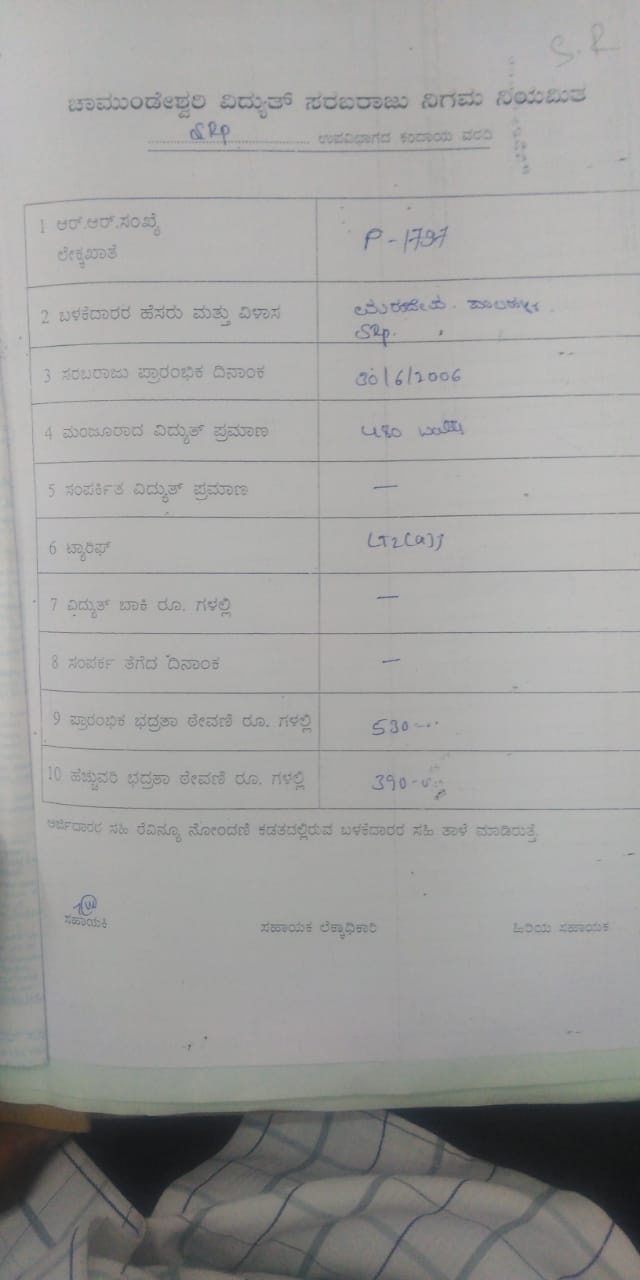 S.R
ಚಾಮುಂಡೇಶ್ವರಿ ವಿದ್ಯುತ್ ಸರಬರಾಜು ನಿಗಮ ನಿಯಮಿತ
SRp ಉಪವಿಭಾಗದ ಕಂದಾಯ ವರದಿ
1 ಆರ್.ಆರ್.ಸಂಖ್ಯೆ
ಲೇಕ್ಕಖಾತೆ
P-1797
2 ಬಳಕೆದಾರರ ಹೆಸರು ಮತ್ತು ವಿಳಾಸ
SRp.
3 ಸರಬರಾಜು ಪ್ರಾರಂಭಿಕ ದಿನಾಂಕ 30/6/2006
4 ಮಂಜೂರಾದ ವಿದ್ಯುತ್ ಪ್ರಮಾಣ 480
5 ಸಂಪರ್ಕಿತ ವಿದ್ಯುತ್ ಪ್ರಮಾಣ —
6 ಟ್ಯಾರಿಫ್
7 ವಿದ್ಯುತ್ ಬಾಕಿ ರೂ. ಗಳಲ್ಲಿ —
8 ಸಂಪರ್ಕ ತೆಗೆದ ದಿನಾಂಕ —
9 ಪ್ರಾರಂಭಿಕ ಭದ್ರತಾ ಠೇವಣಿ ರೂ. ಗಳಲ್ಲಿ 530
10 ಹೆಚ್ಚುವರಿ ಭದ್ರತಾ ಠೇವಣಿ ರೂ. ಗಳಲ್ಲಿ 390
ಅರ್ಜಿದಾರರ ಸಹಿ ರೆವಿನ್ಯೂ ನೋಂದಣಿ ಕಡತದಲ್ಲಿರುವ ಬಳಕೆದಾರರ ಸಹಿ ತಾಳೆ ಮಾಡಿರುತ್ತೆ.
ಸಹಾಯಕಿ ಸಹಾಯಕ ಲೆಕ್ಕಾಧಿಕಾರಿ ಹಿರಿಯ ಸಹಾಯಕ